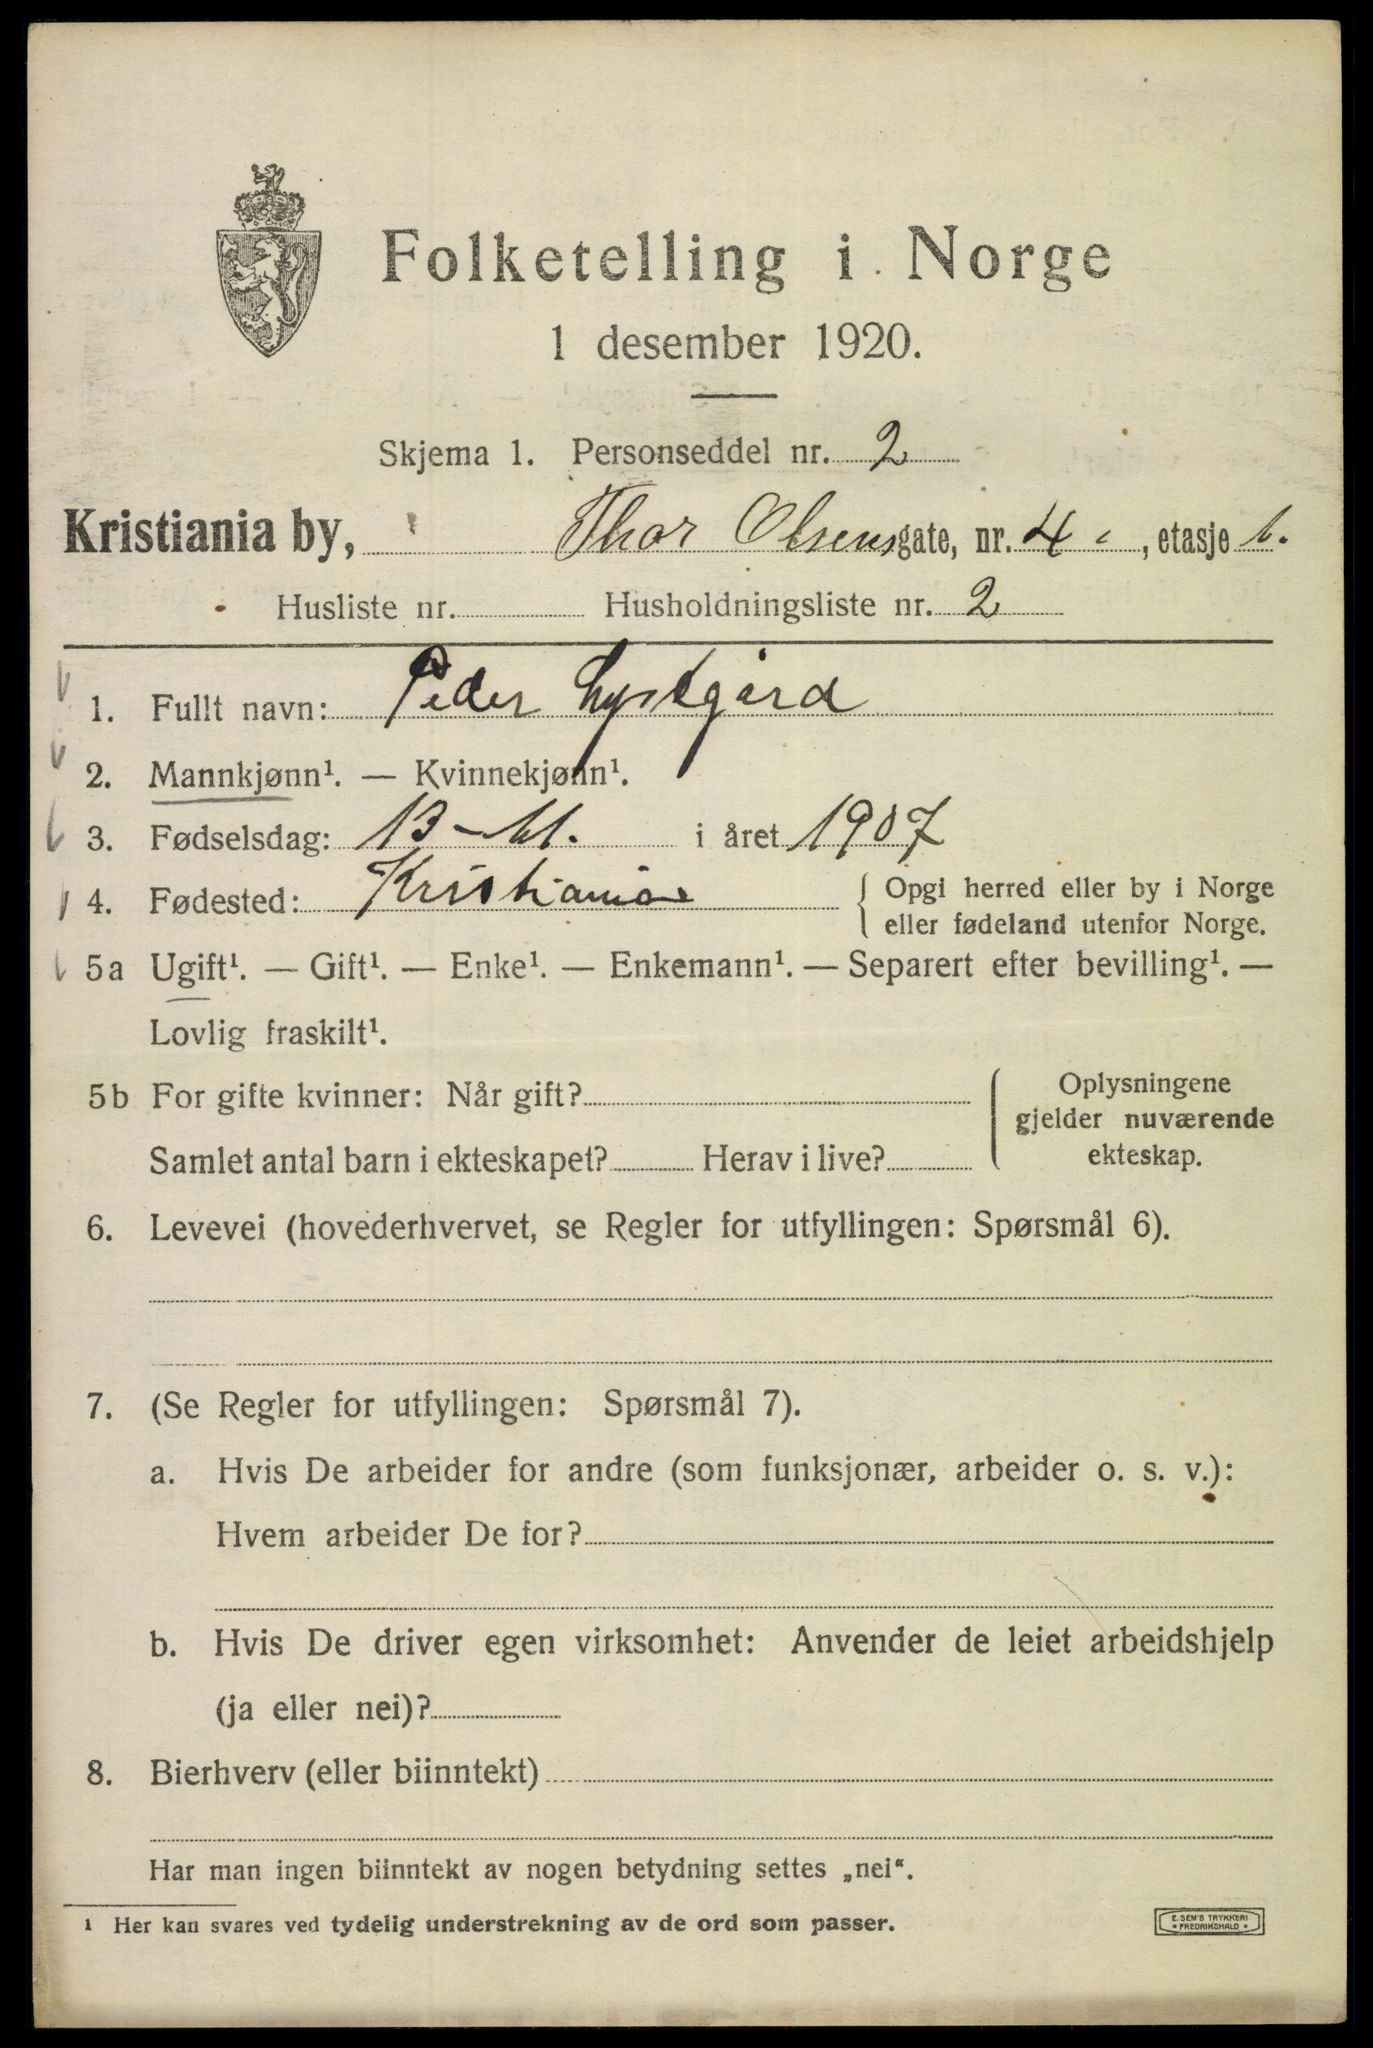 Folketelling i Norge
1 desember 1920.
Skjema 1. Personseddel nr. 2
Kristiania by, Thor Olsens gate, nr. 4, etasje 1.
Husliste nr. Husholdningsliste nr. 2
1. Fullt navn: Peder Lystgård
2. Mannkjønn¹. — Kvinnekjønn¹.
3. Fødselsdag: 13-11. i året 1907
4. Fødested: Kristiania { Opgi herred eller by i Norge
eller fødeland utenfor Norge.
5a Ugift¹. — Gift¹. — Enke¹. — Enkemann¹. — Separert efter bevilling¹. —
Lovlig fraskilt¹.
5b For gifte kvinner: Når gift? Oplysningene
gjelder nuværende
Samlet antal barn i ekteskapet? Herav i live? ekteskap.
6. Levevei (hovederhvervet, se Regler for utfyllingen: Spørsmål 6).
7. (Se Regler for utfyllingen: Spørsmål 7).
a. Hvis De arbeider for andre (som funksjonær, arbeider o. s. v.):
Hvem arbeider De for?
b. Hvis De driver egen virksomhet: Anvender de leiet arbeidshjelp
(ja eller nei)?
8. Bierhverv (eller biinntekt)
Har man ingen biinntekt av nogen betydning settes „nei".
¹ Her kan svares ved tydelig understrekning av de ord som passer.
E. SEM'S TRYKKERI
FREDRIKSHALD